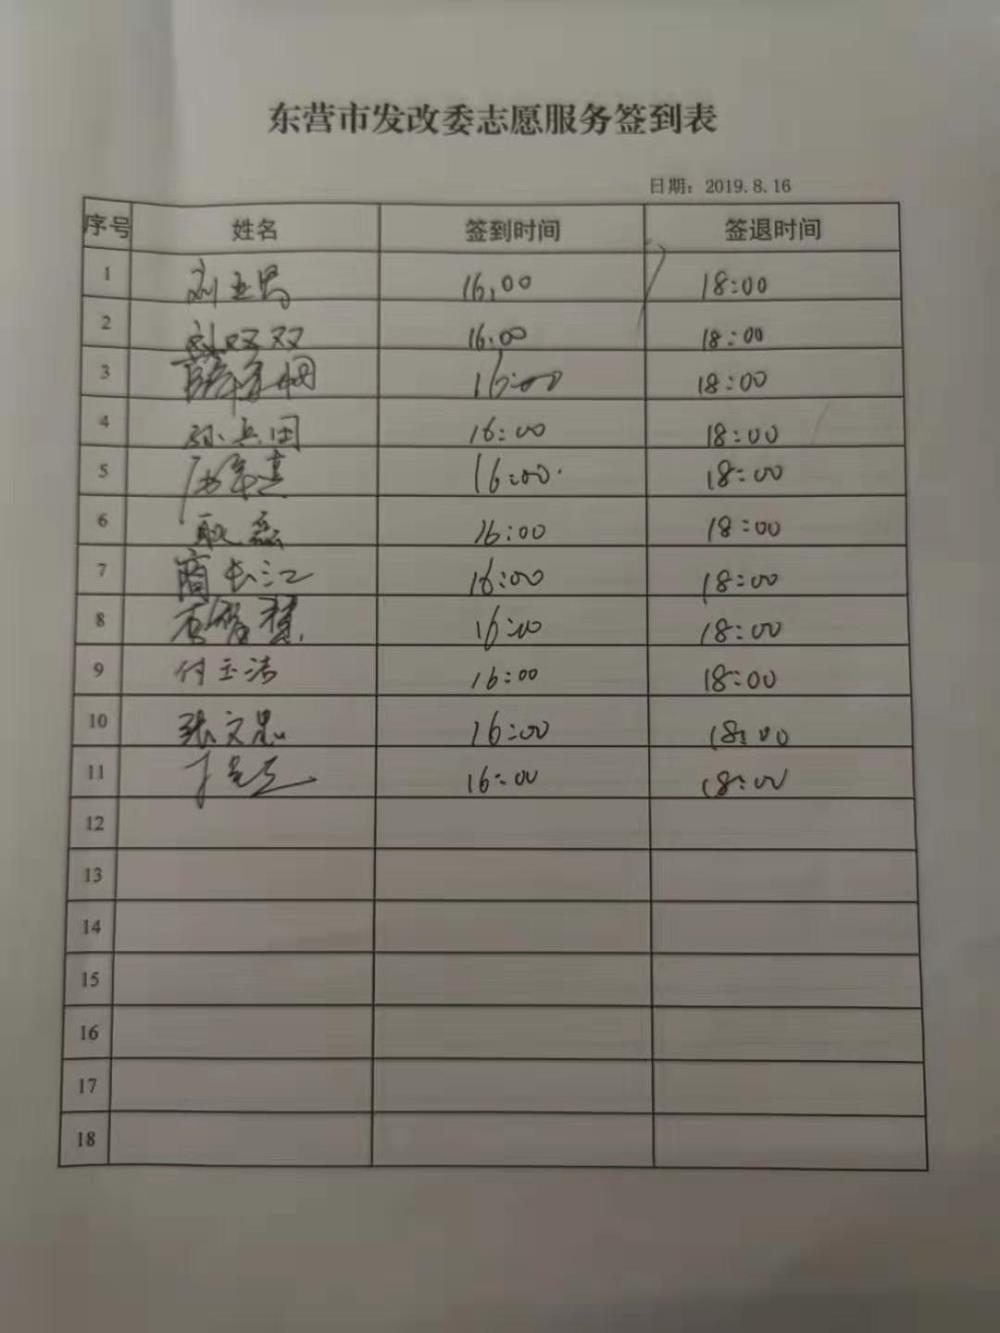 东营市发改委志愿服务签到表
日期：2019.8.16
序号 姓名 签到时间 签退时间
1 刘 16:00 18:00
2 刘双双 16:00 18:00
3 16:00 18:00
4 孙兵田 16:00 18:00
5 16:00 18:00
6 耿磊 16:00 18:00
7 商长江 16:00 18:00
8 16:00 18:00
9 付玉洁 16:00 18:00
10 张文忠 16:00 18:00
11 16:00 18:00
12
13
14
15
16
17
18